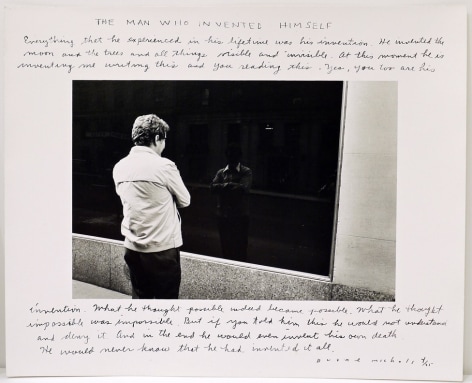 THE MAN WHO INVENTED HIMSELF
Everything that he experienced in his lifetime was his invention. He invented the
moon and the trees and all things visible and invisible. At this moment he is
inventing me writing this and you reading this. Yes, you too are his
invention. What he thought possible indeed became possible. What he thought
impossible was impossible. But if you told him this he would not understand
and deny it. And in the end he would even invent his own death
He would never know that he had invented it all.
Duane Michals